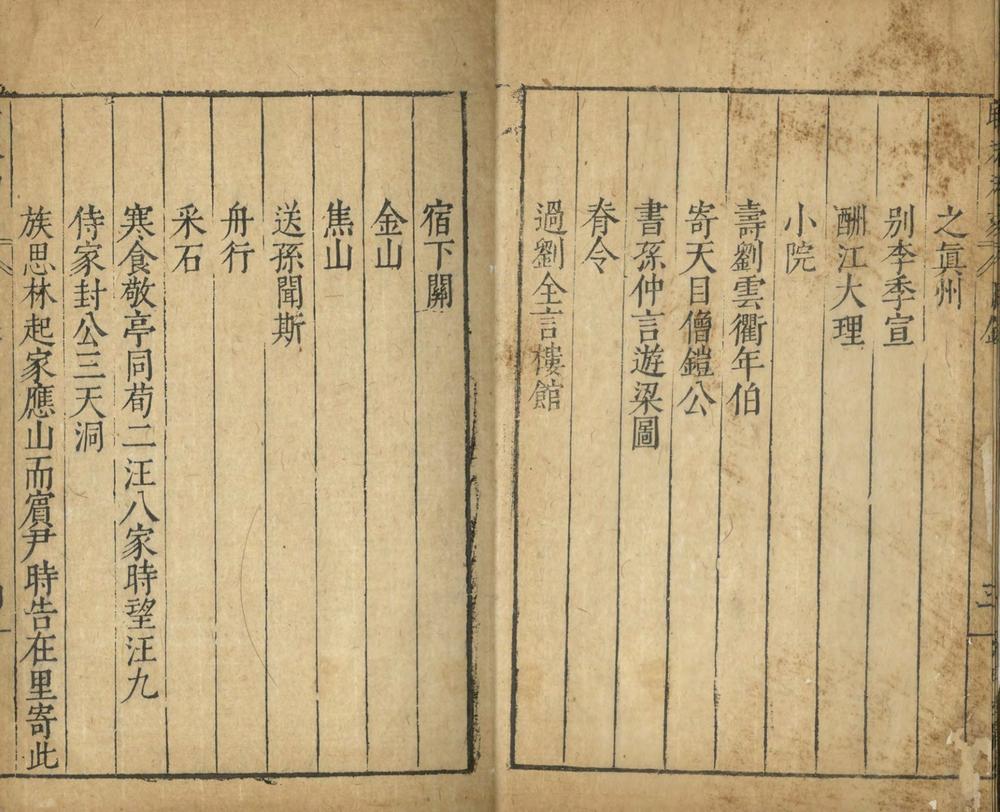 之眞州
別李季宣
酬江大理
小院
壽劉雲衢年伯
寄天目僧鎧公
書孫仲言遊梁圖
脊令
過劉全言樓館
宿下關
金山
焦山
送孫聞斯
舟行
采石
寒食敬亭同荀二汪八家時望汪九
侍家封公三天洞
族思林起家應山而賓尹時告在里寄此
三